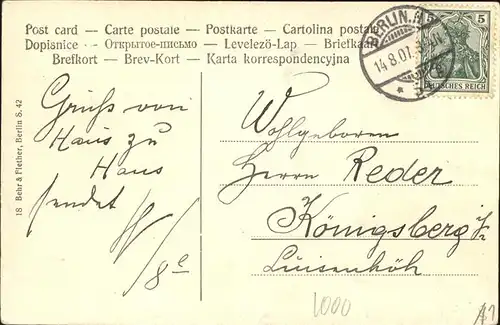 Post card — Carte postale — Postkarte — Cartolina postale
Dopisnice — Открытое-письмо — Levelező-Lap — Briefkaart
Brefkort — Brev-Kort — Karta korrespondencyjna
BERLIN
14.8.07
5 5
DEUTSCHES REICH
18 Behr & Flether, Berlin S. 42
Gruß von
Haus zu
Haus
sendet
Wohlgeboren
Herrn Reder
Königsberg
Luisenhöh
1000